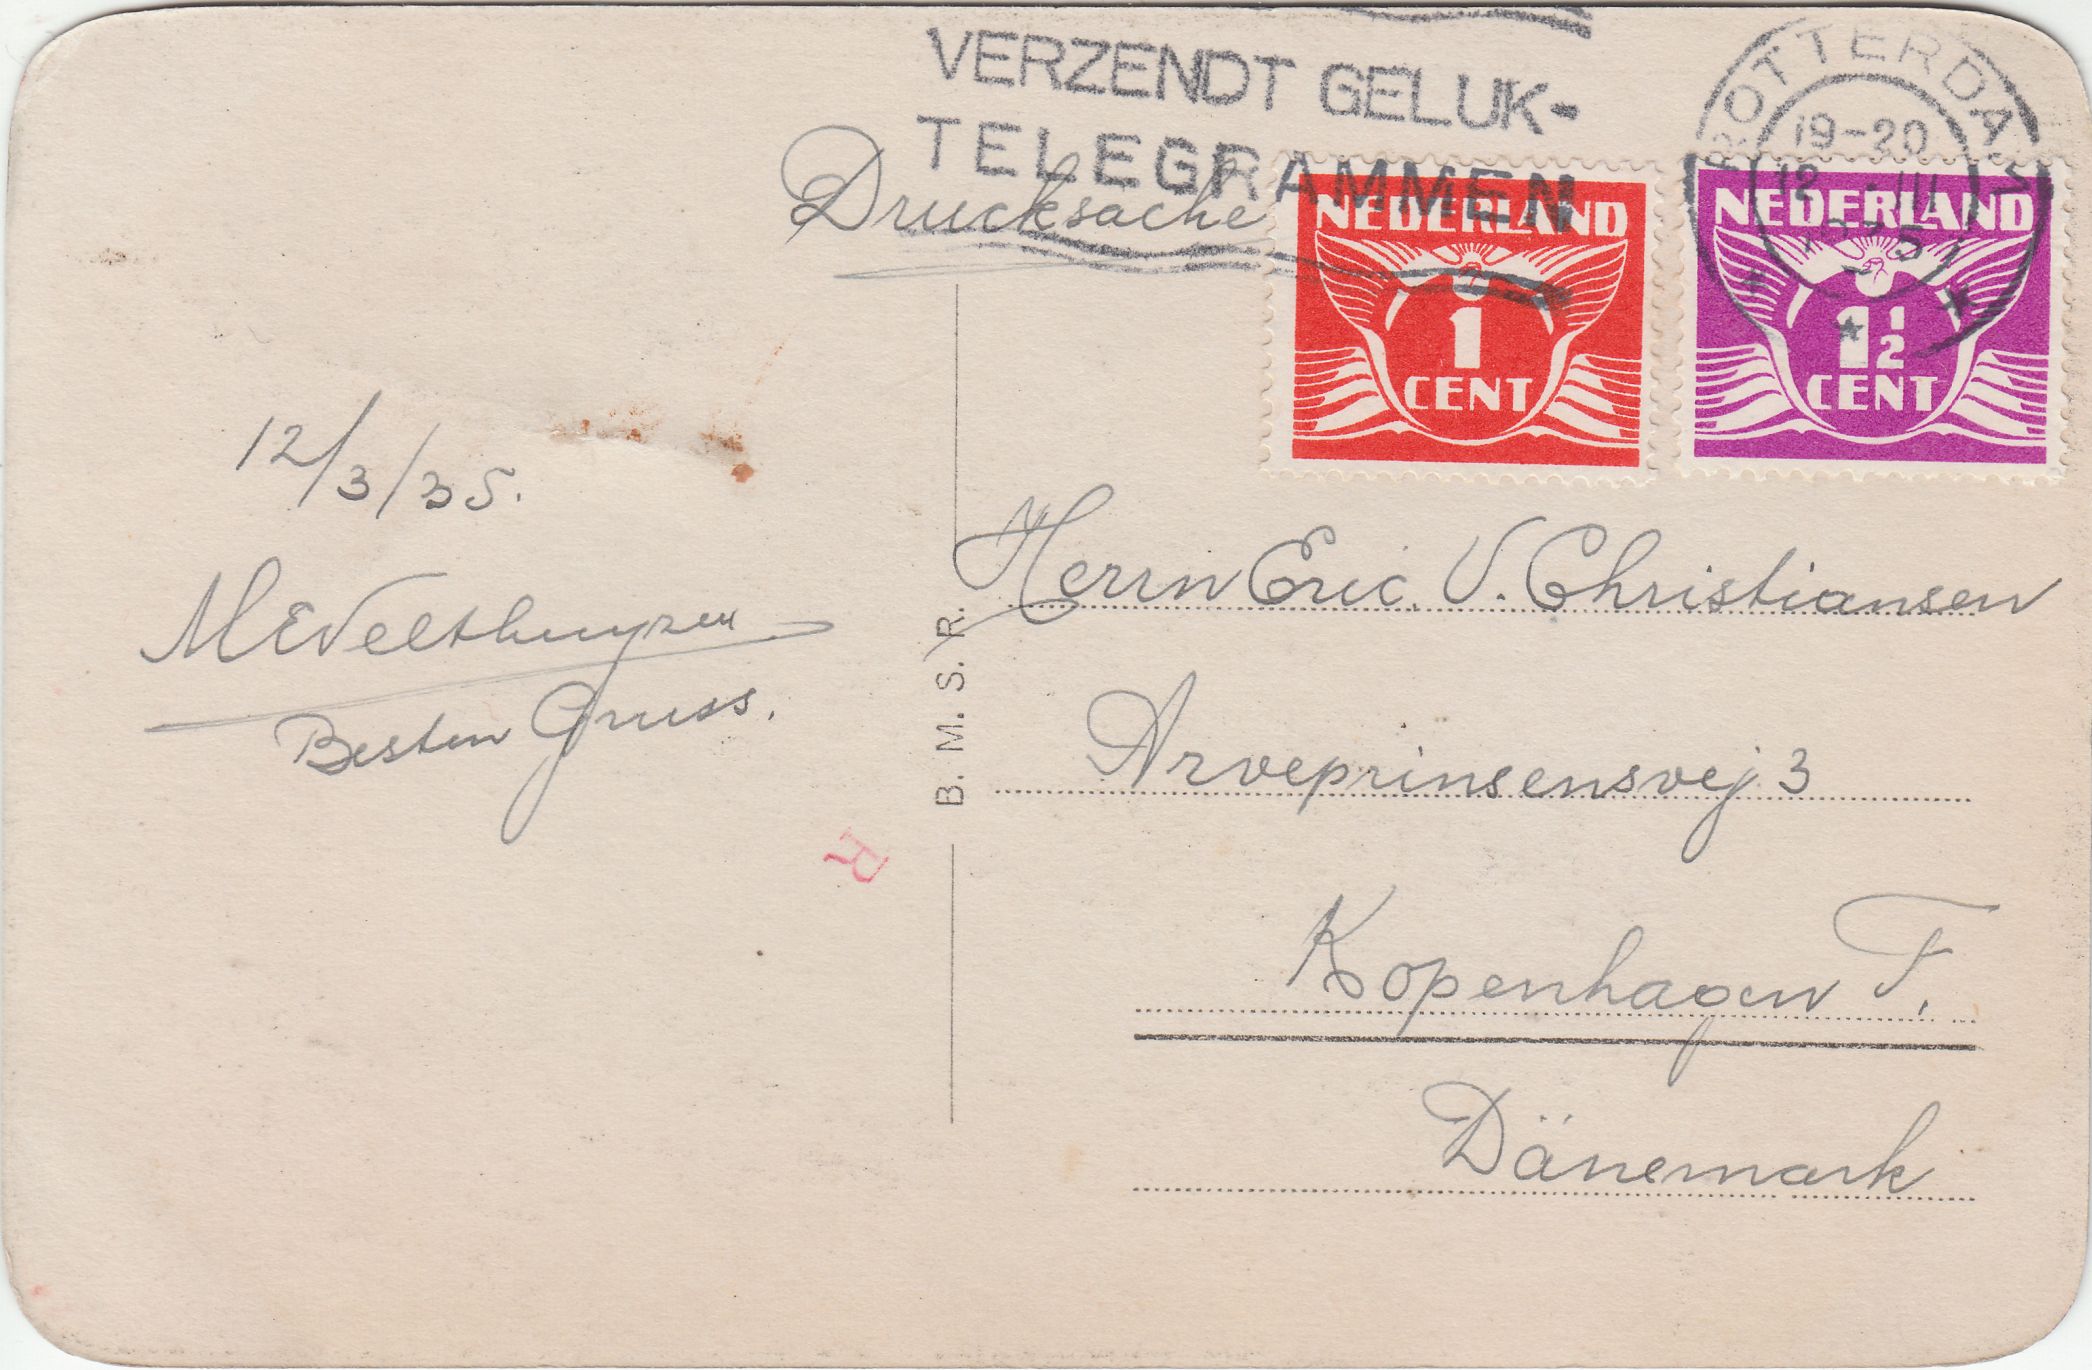 VERZENDT GELUK-
TELEGRAMMEN
ROTTERDAM
19-20
12 III
1935
Drucksache
NEDERLAND
1
CENT
NEDERLAND
1 1/2
CENT
12/3/35.
MEVelthuyzen
Besten Gruss.
B. M. S. R.
R
Herrn Eric. V. Christiansen
Arveprinsensvej 3
Kopenhagen F.
Dänemark